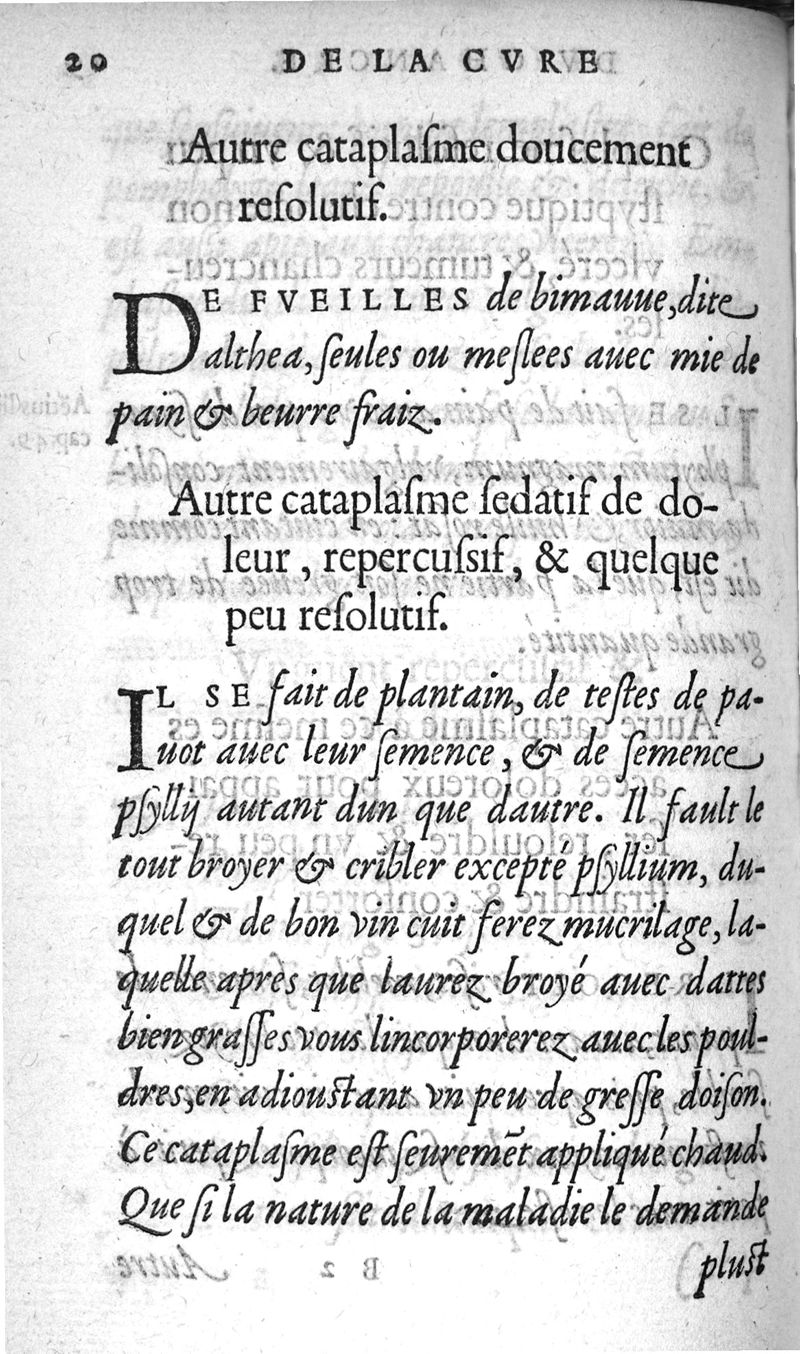 20 DE LA CVRE
Autre cataplaſme doucement
reſolutif.
DE FVEILLES de bimauue, dite
althea, ſeules ou meſlees auec mie de
pain & beurre fraiz.
Autre cataplaſme ſedatif de do-
leur, repercuſsif, & quelque
peu reſolutif.
IL SE fait de plantain, de teſtes de pa-
uot auec leur ſemence, & de ſemence
pſyllij autant dun que dautre. Il fault le
tout broyer & cribler excepté pſyllium, du-
quel & de bon vin cuit ferez mucrilage, la-
quelle apres que laurez broyé auec dattes
bien graſſes vous lincorporerez auec les poul-
dres, en adiouſtant vn peu de greſſe doiſon.
Ce cataplaſme eſt ſeuremēt appliqué chaud.
Que ſi la nature de la maladie le demande
pluſt